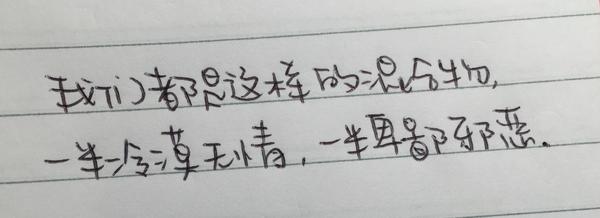 我们都是这样的混合物,
一半冷漠无情,一半卑鄙邪恶.